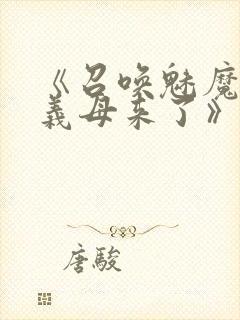 《召唤魅魔
義母来了》
唐駿